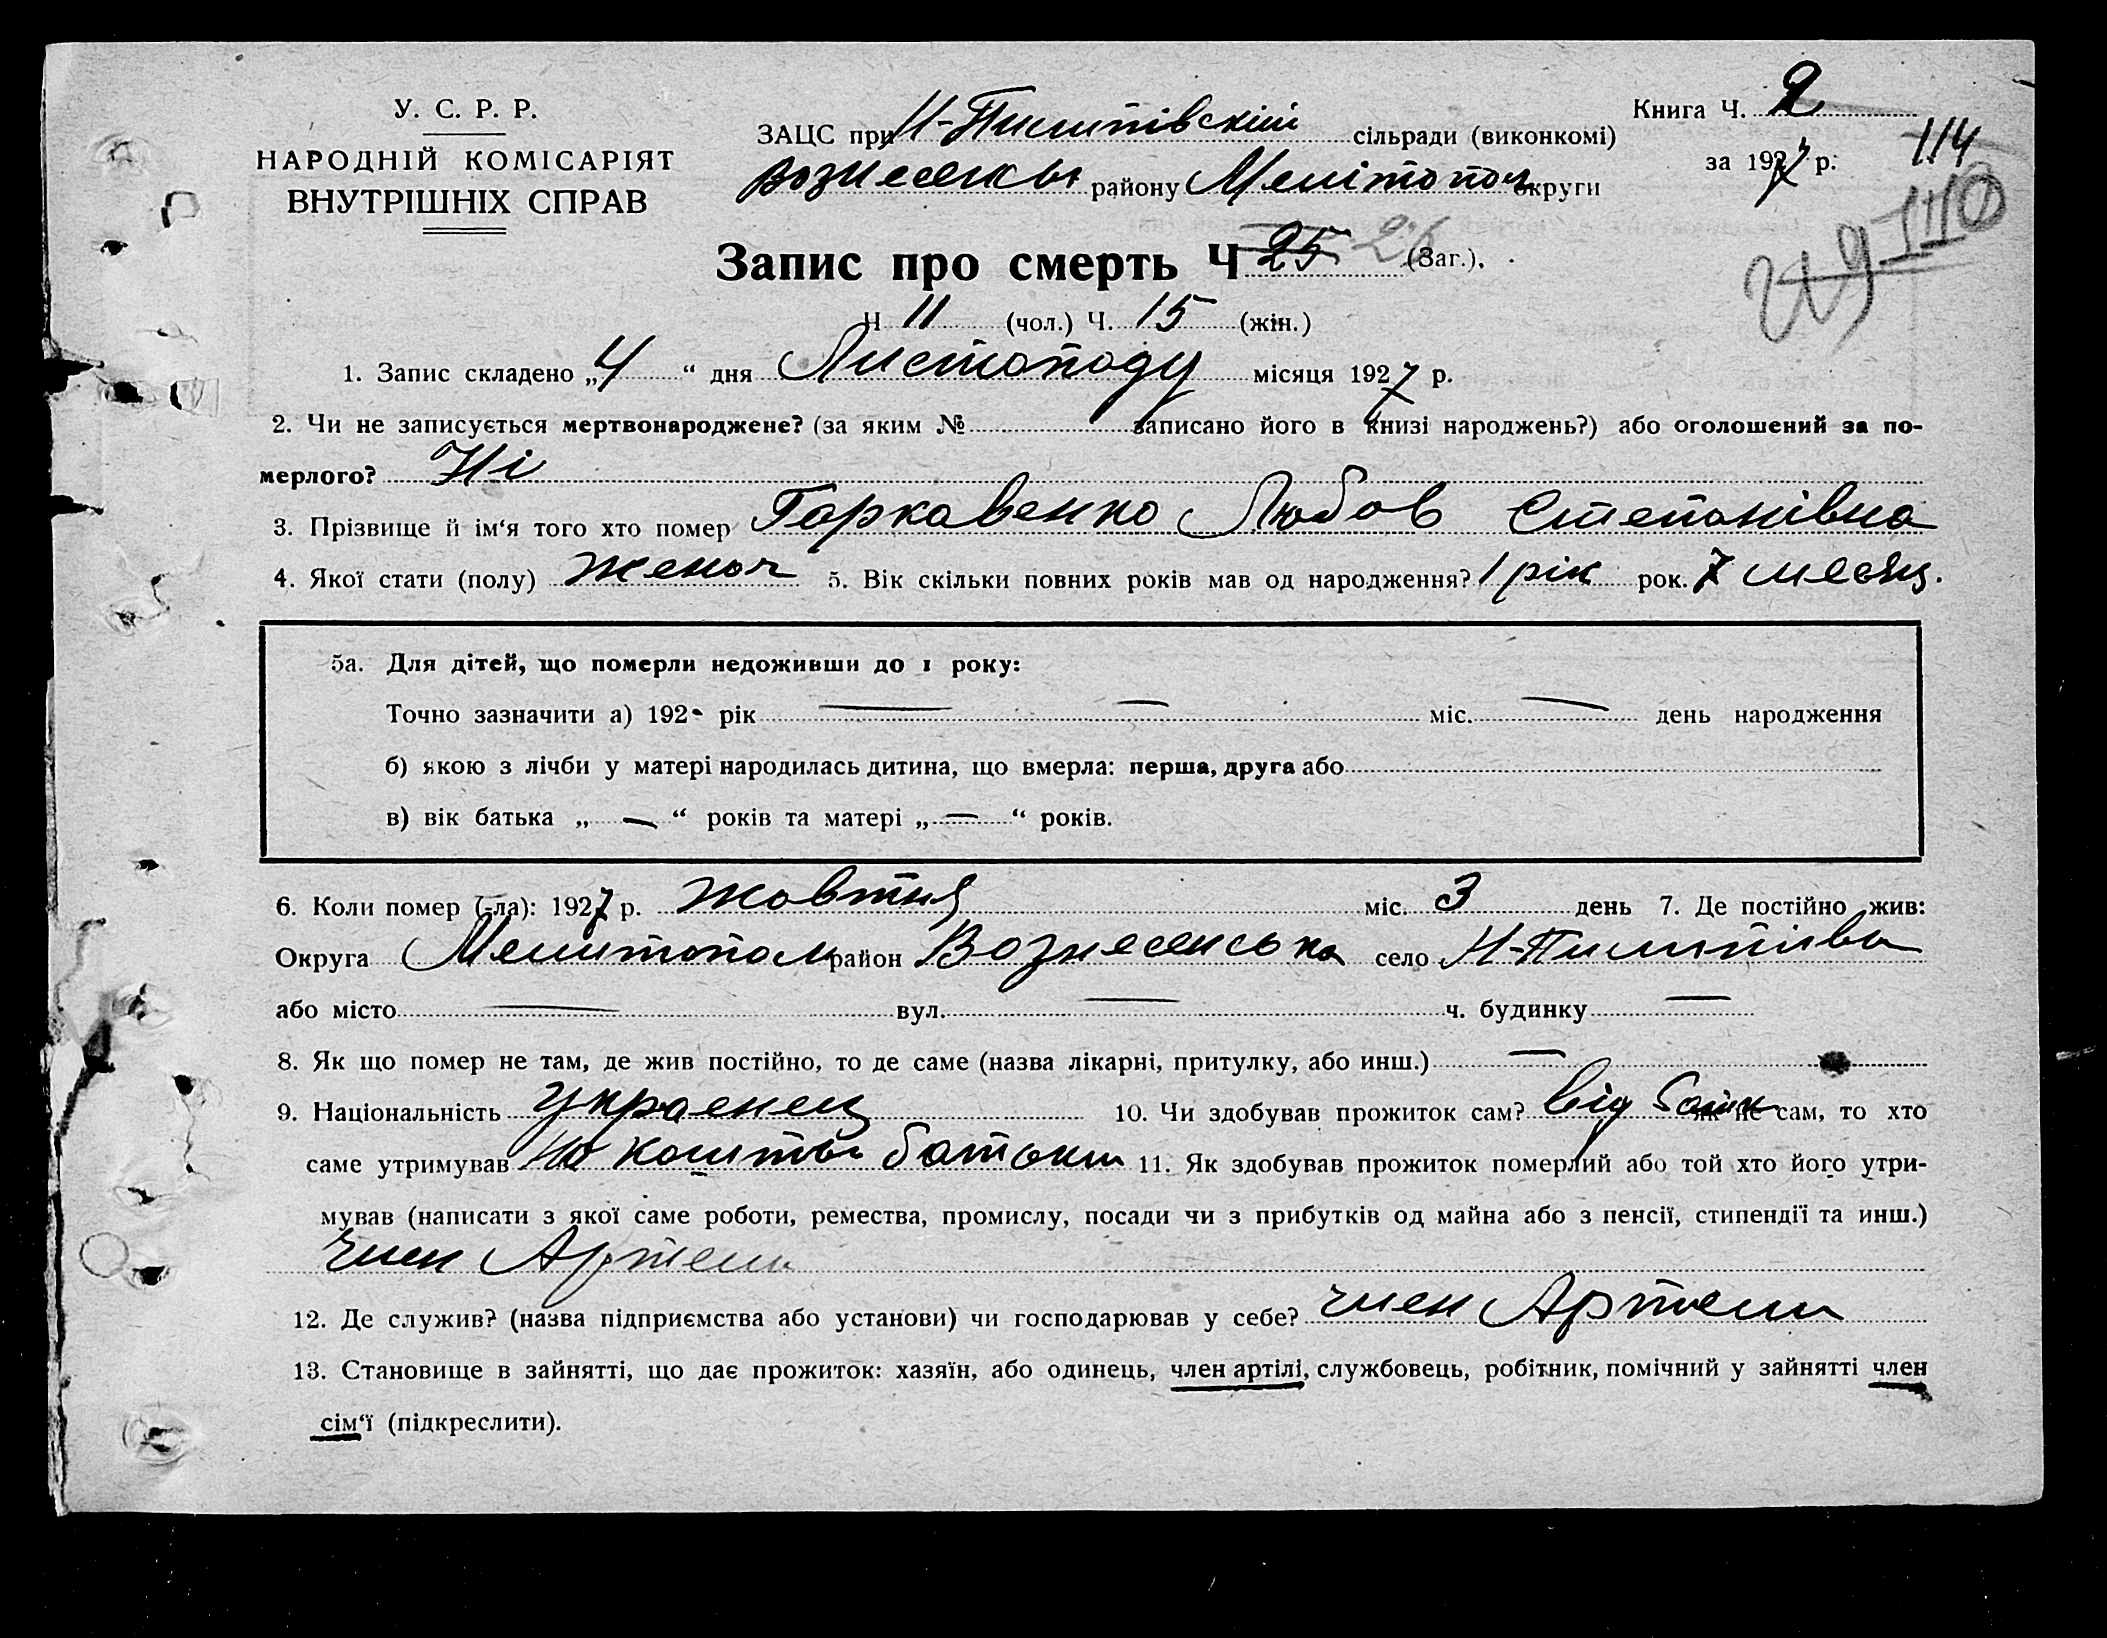 У. С. Р. Р.
НАРОДНІЙ КОМІСАРІЯТ
ВНУТРІШНІХ СПРАВ
Книга Ч. 2
ЗАЦС при Н-Пилипівскій сільради (виконкомі)
за 1927 р.
114
Вознесенськ району Мелітопол округи
Запис про смерть Ч 25 26 (Заг.).
Ч 11 (чол.) Ч. 15 (жін.)
1. Запис складено „4“ дня Листопаду місяця 1927 р.
2. Чи не записується мертвонароджене? (за яким № записано його в книзі народжень?) або оголошений за по-
мерлого? Ні
3. Прізвище й ім‘я того хто помер Гаркавенко Любов Степанівна
4. Якої стати (полу) женоч 5. Вік скільки повних років мав од народження? 1 рік рок. 7 месяц.
5а. Для дітей, що померли недоживши до 1 року:
Точно зазначити а) 192 рік — — міс. — день народження
б) якою з лічби у матері народилась дитина, що вмерла: перша, друга або
в) вік батька „ — “ років та матері „ — “ років.
6. Коли помер (-ла): 1927 р. жовтня міс. 3 день 7. Де постійно жив:
Округа Мелитопол район Вознесенська село Н-Пилипівка
або місто — вул. — ч. будинку —
8. Як що помер не там, де жив постійно, то де саме (назва лікарні, притулку, або инш.) —
9. Національність Украенец 10. Чи здобував прожиток сам? Від як не сам, то хто
саме утримував На кошты батьки 11. Як здобував прожиток померлий або той хто його утри-
мував (написати з якої саме роботи, ремества, промислу, посади чи з прибутків од майна або з пенсії, стипендії та инш.)
член Артели
12. Де служив? (назва підприємства або установи) чи господарював у себе? член Артели
13. Становище в зайнятті, що дає прожиток: хазяїн, або одинець, член артілі, службовець, робітник, помічний у зайнятті член
сім‘ї (підкреслити).